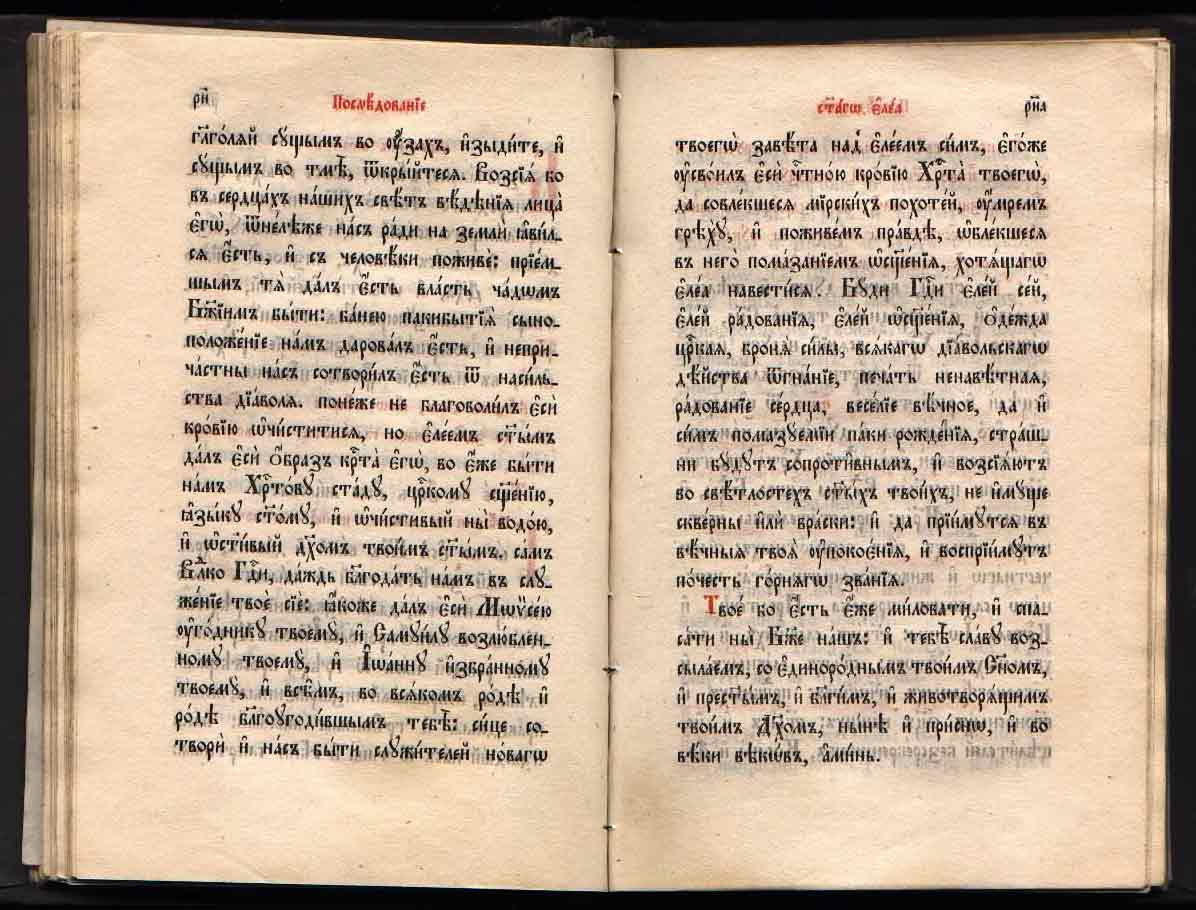 р҃н
Послѣ́дованїе
гл҃го́ляй сꙋ́щымъ во ᲂу҆́захъ, и҆зыди́те, и҆
сꙋ́щымъ во тмѣ̀, ѿкры́йтеся. Возсїя́ бо
въ сердца́хъ на́шихъ свѣ́тъ вѣ́дѣнїя лица̀
є҆гѡ̀, ѿне́лѣже на́съ ра́ди на землѝ ꙗ҆ви́л-
ся є҆́сть, и҆ съ человѣ́ки поживѐ: прїе́м-
шымъ тѧ̀ да́лъ є҆́сть вла́сть ча́дѡмъ
Бж҃їимъ бы́ти: ба́нею пакибытїѧ̀ сыно-
положе́нїе на́мъ дарова́лъ є҆́сть, и҆ непри-
ча́стны на́съ сотвори́лъ є҆́сть ѿ наси́ль-
ства дїа́воля. поне́же не благоволи́лъ є҆сѝ
кро́вїю ѡ҆чи́ститися, но є҆ле́емъ ст҃ы́мъ
да́лъ є҆сѝ ѻ҆́бразъ кр҃та̀ є҆гѡ̀, во є҆́же бы́ти
на́мъ Хр҃то́вꙋ ста́дꙋ, цр҃комꙋ сщ҃е́нїю,
ꙗ҆зы́кꙋ ст҃о́мꙋ, и҆ ѡ҆чи́стивый ны̀ водо́ю,
и҆ ѡ҆ст҃и́вый дх҃омъ твои́мъ ст҃ы́мъ. са́мъ
Влⷣко Гдⷭ҇и, да́ждь бл҃года́ть на́мъ въ слꙋ-
же́нїе твоѐ сїѐ: ꙗ҆́коже да́лъ є҆сѝ Мѡѷсе́ю
ᲂу҆го́дникꙋ твоемꙋ̀, и҆ Самꙋи́лꙋ возлю́блен-
номꙋ твоемꙋ̀, и҆ І҆ѡа́ннꙋ и҆збра́нномꙋ
твоемꙋ̀, и҆ всѣ̑мъ, во всѧ́комъ ро́дѣ и҆
ро́дѣ бл҃гоꙋгоди́вшымъ тебѣ̀: си́це со-
творѝ и҆ на́съ бы́ти слꙋжи́телей но́вагѡ
ст҃а́гѡ є҆ле́а
р҃на
твоегѡ̀ завѣ́та над̾ є҆ле́емъ си́мъ, є҆го́же
ᲂу҆сво́илъ є҆сѝ чⷭ҇тно́ю кро́вїю Хр҃та̀ твоегѡ̀,
да совле́кшеся мїрски́хъ похоте́й, ᲂу҆́мремъ
грѣхꙋ̀, и҆ поживе́мъ пра́вдѣ, ѡ҆бле́кшеся
въ него̀ пома́занїемъ ѡ҆сщ҃е́нїя, хотя́щагѡ
є҆ле́а навести́ся. Бꙋ́ди Гдⷭ҇и є҆ле́й се́й,
є҆ле́й ра́дованїя, є҆ле́й ѡ҆сщ҃е́нїя, ѻ҆де́жда
цр҃кая, броня̀ си́лы, всѧ́кагѡ дїа́вольскагѡ
дѣ́йства ѿгна́нїе, печа́ть ненавѣ́тная,
ра́дованїе се́рдца, весе́лїе вѣ́чное, да и҆
си́мъ помазꙋ́емїи па́ки рожде́нїя, стра́ш-
ни бꙋ́дꙋтъ сопроти̑внымъ, и҆ возсїя́ютъ
во свѣ́тлостехъ ст҃ы́хъ твои́хъ, не и҆мꙋ́ще
скве́рны и҆лѝ вра́ски: и҆ да прїи́мꙋтся въ
вѣ̑чныя твоѧ̑ ᲂу҆покоє́нїя, и҆ воспрїи́мꙋтъ
по́честь го́рнягѡ зва́нїя.
Твое́ бо є҆́сть є҆́же ми́ловати, и҆ спа-
са́ти ны̀ Бж҃е на́шъ: и҆ тебѣ̀ сла́вꙋ воз-
сыла́емъ, со є҆диноро́днымъ твои́мъ Сн҃омъ,
и҆ прест҃ы́мъ, и҆ бл҃ги́мъ, и҆ животворя́щимъ
твои́мъ Дх҃омъ, ны́нѣ и҆ при́снѡ, и҆ во
вѣ́ки вѣкѡ́въ, а҆ми́нь.